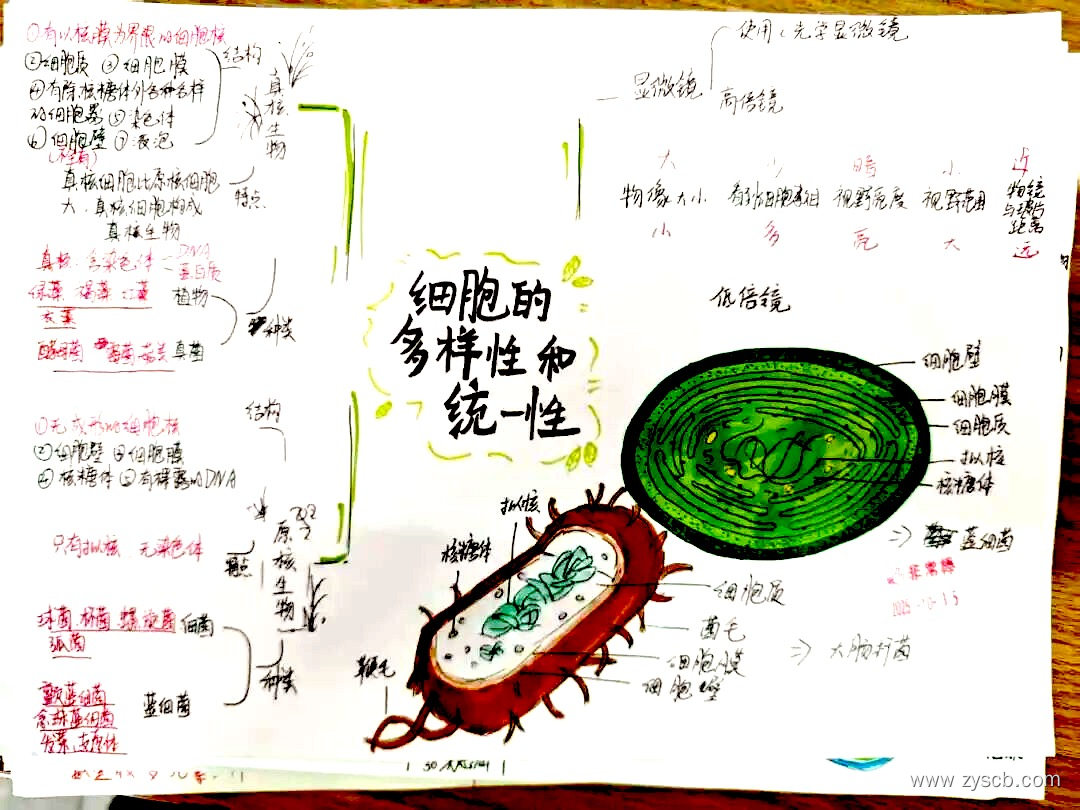 ①有以核膜为界限的细胞核
②细胞质 ③细胞膜
④有除核糖体外各种各样
的细胞器 ⑤染色体
⑥细胞壁 ⑦液泡
结构
真核生物
真核细胞比原核细胞
大、真核细胞构成
真核生物
特点
真核、含染色体
DNA
蛋白质
绿藻 褐藻 红藻
植物
衣藻
酵母菌
真菌
种类
结构
①无成形的细胞核
②细胞壁 ③细胞膜
④核糖体 ⑤有裸露的DNA
只有拟核、无染色体
特点
原核生物
球菌 杆菌 螺旋菌
弧菌
细菌
种类
颤蓝细菌
念珠蓝细菌
发菜
蓝细菌
细胞的
多样性和
统一性
使用:光学显微镜
显微镜
高倍镜
大 少 暗 小 近
物像大小 看到细胞数目 视野亮度 视野范围 物镜与玻片距离
小 多 亮 大 远
低倍镜
细胞壁
细胞膜
细胞质
拟核
核糖体
⇒ 蓝细菌
拟核
核糖体
细胞质
菌毛
⇒ 大肠杆菌
细胞膜
细胞壁
鞭毛
www.zyscb.com